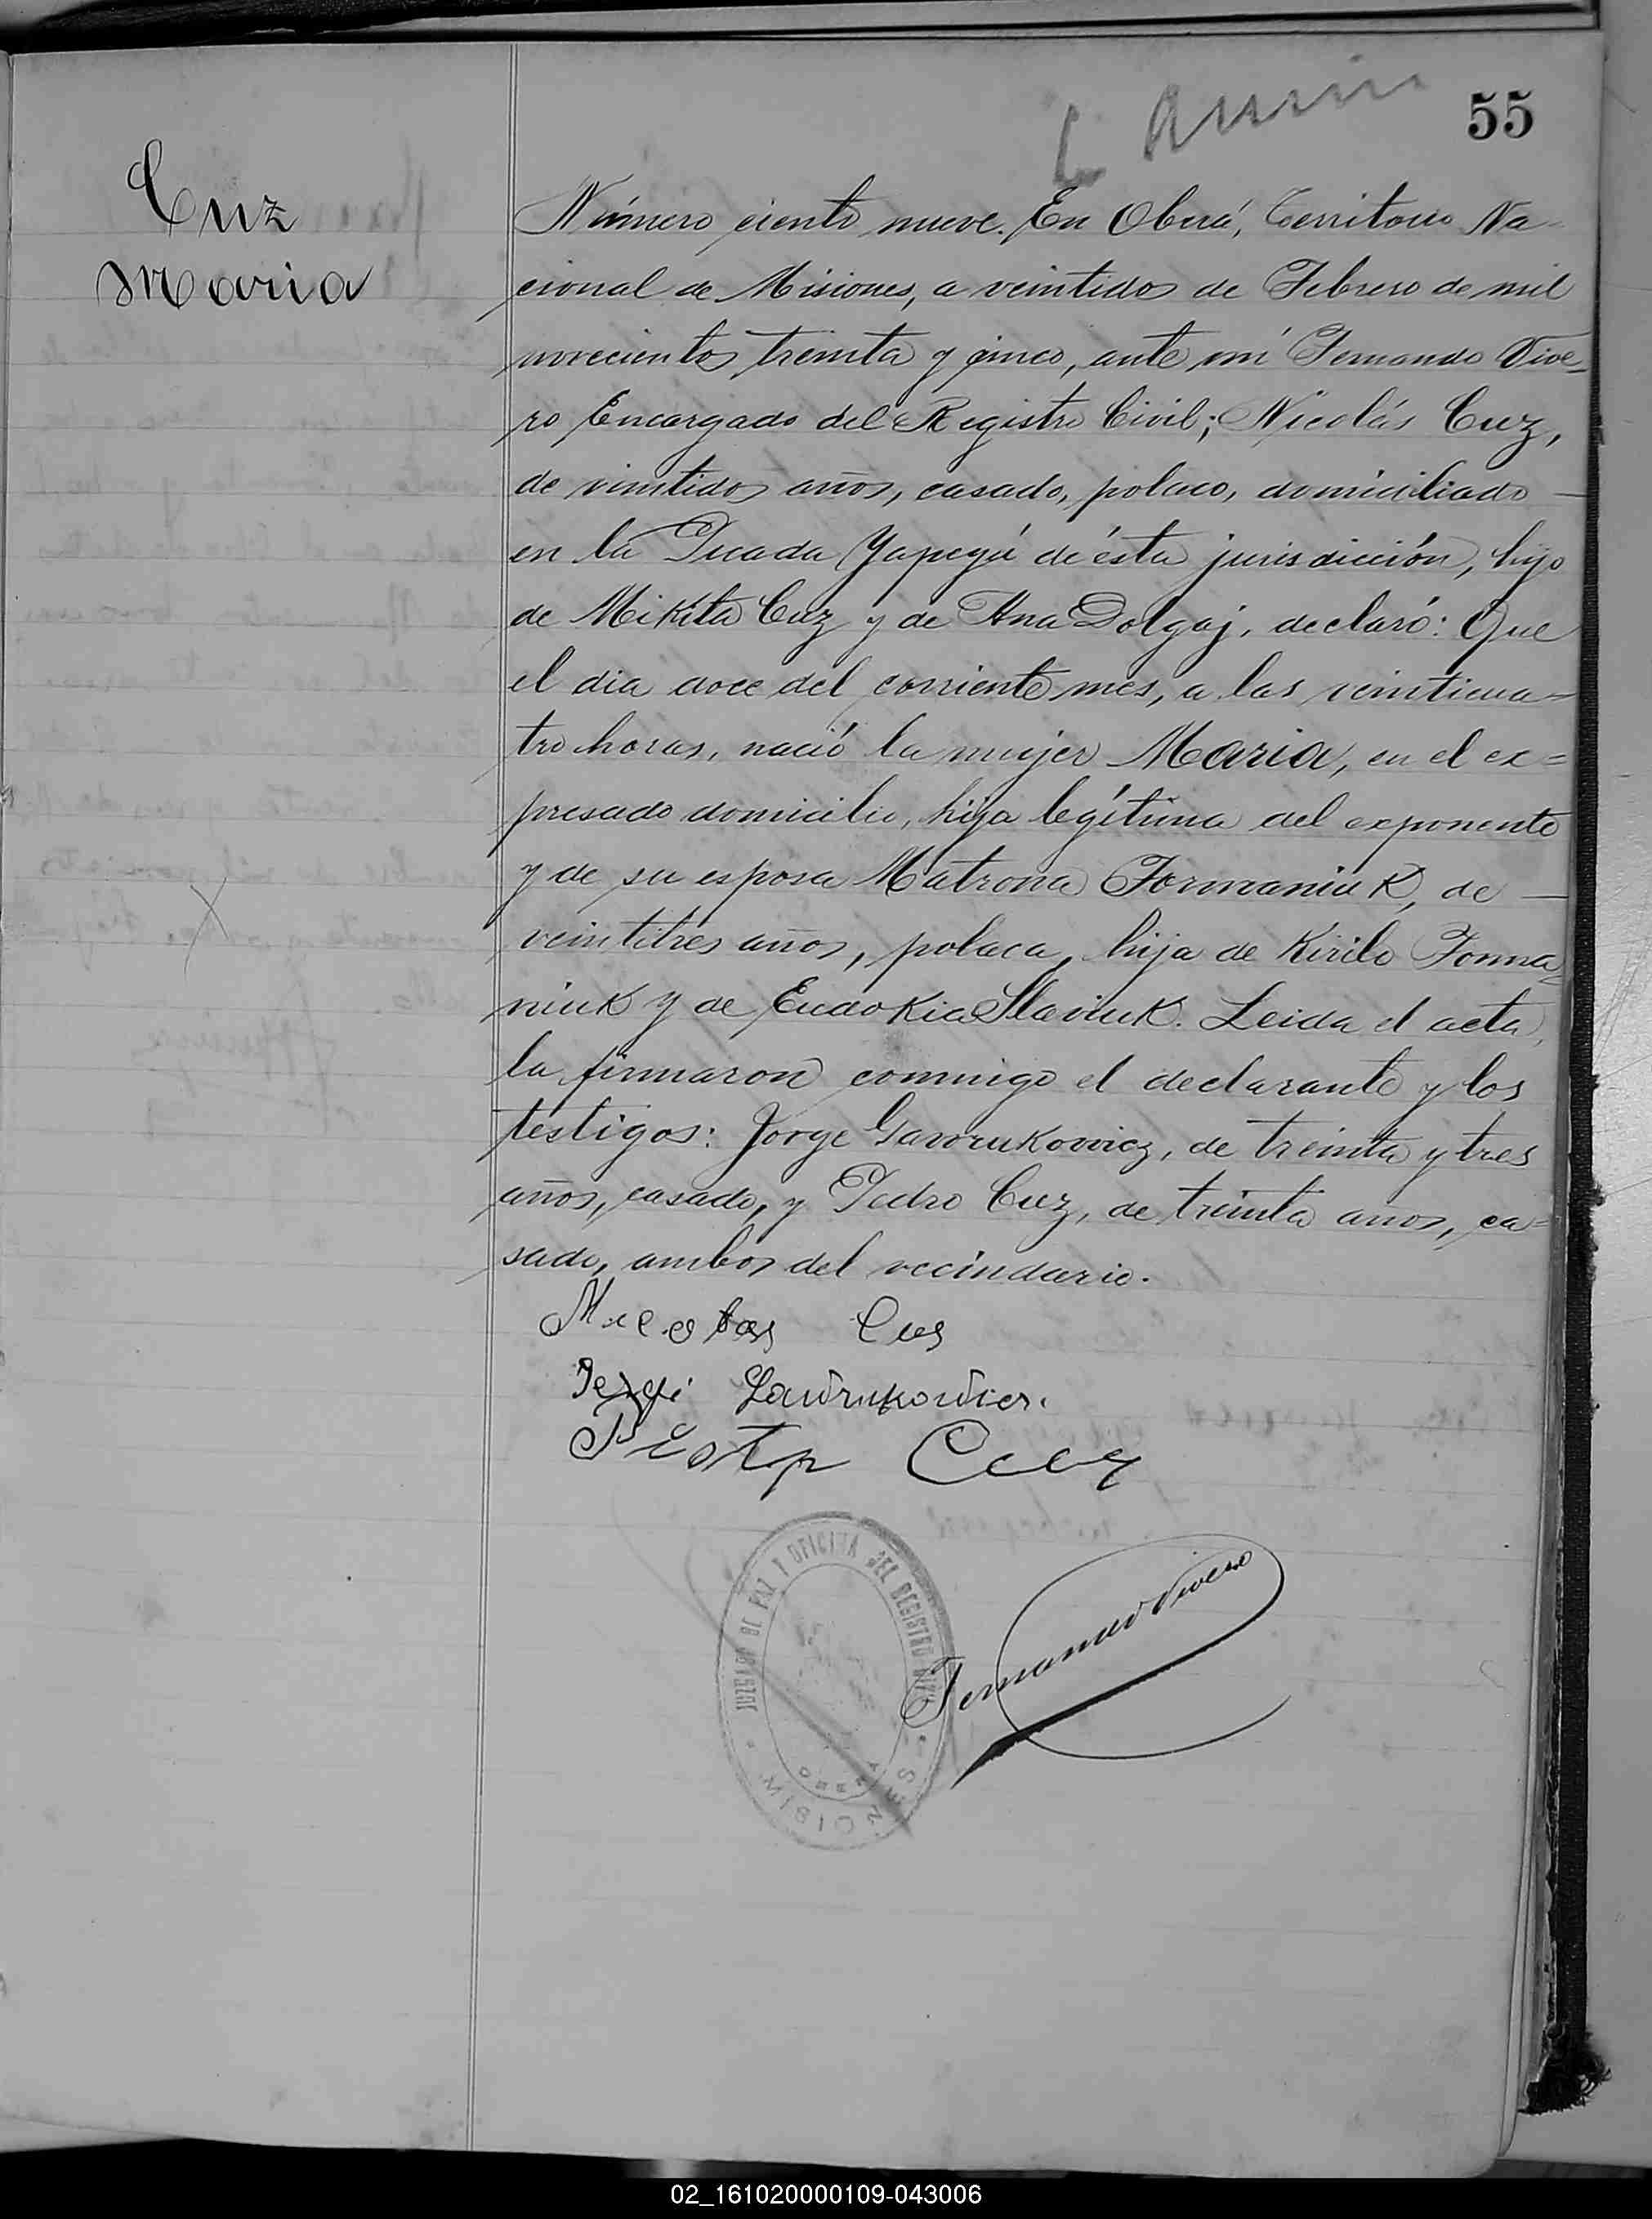 55
Cuz
Maria
Número ciento nueve. En Oberá, Territorio Na-
cional de Misiones, a veintidos de Febrero de mil
novecientos treinta y cinco, ante mí Fernando Vive-
ro Encargado del Registro Civil; Nicolás Cuz,
de vintidos años, casado, polaco, domiciliado —
en la Picada Yapeyú de ésta jurisdicción, hijo
de Mikita Cuz y de Ana Dolgaj, declaró: Que
el dia doce del corriente mes, a las veinticua-
tro horas, nació la mujer Maria, en el ex=
presado domicilio, hija legítima del exponente
y de su esposa Matrona Formaniuk, de —
veintitrés años, polaca, hija de Kirilo Forma-
niuk y de Eudokia Slaviuk. Leida el acta,
la firmaron conmigo el declarante y los
testigos: Jorge Gawrukowicz, de treinta y tres
años, casado, y Pedro Cuz, de treinta años, ca=
sado, ambos del vecindario.
Nicolas Cus
Gawrukowicz.
Piotr Cuz
JUZGADO DE PAZ Y OFICINA DEL REGISTRO CIVIL
OBERA
MISIONES
Fernando Vivero
02_161020000109-043006